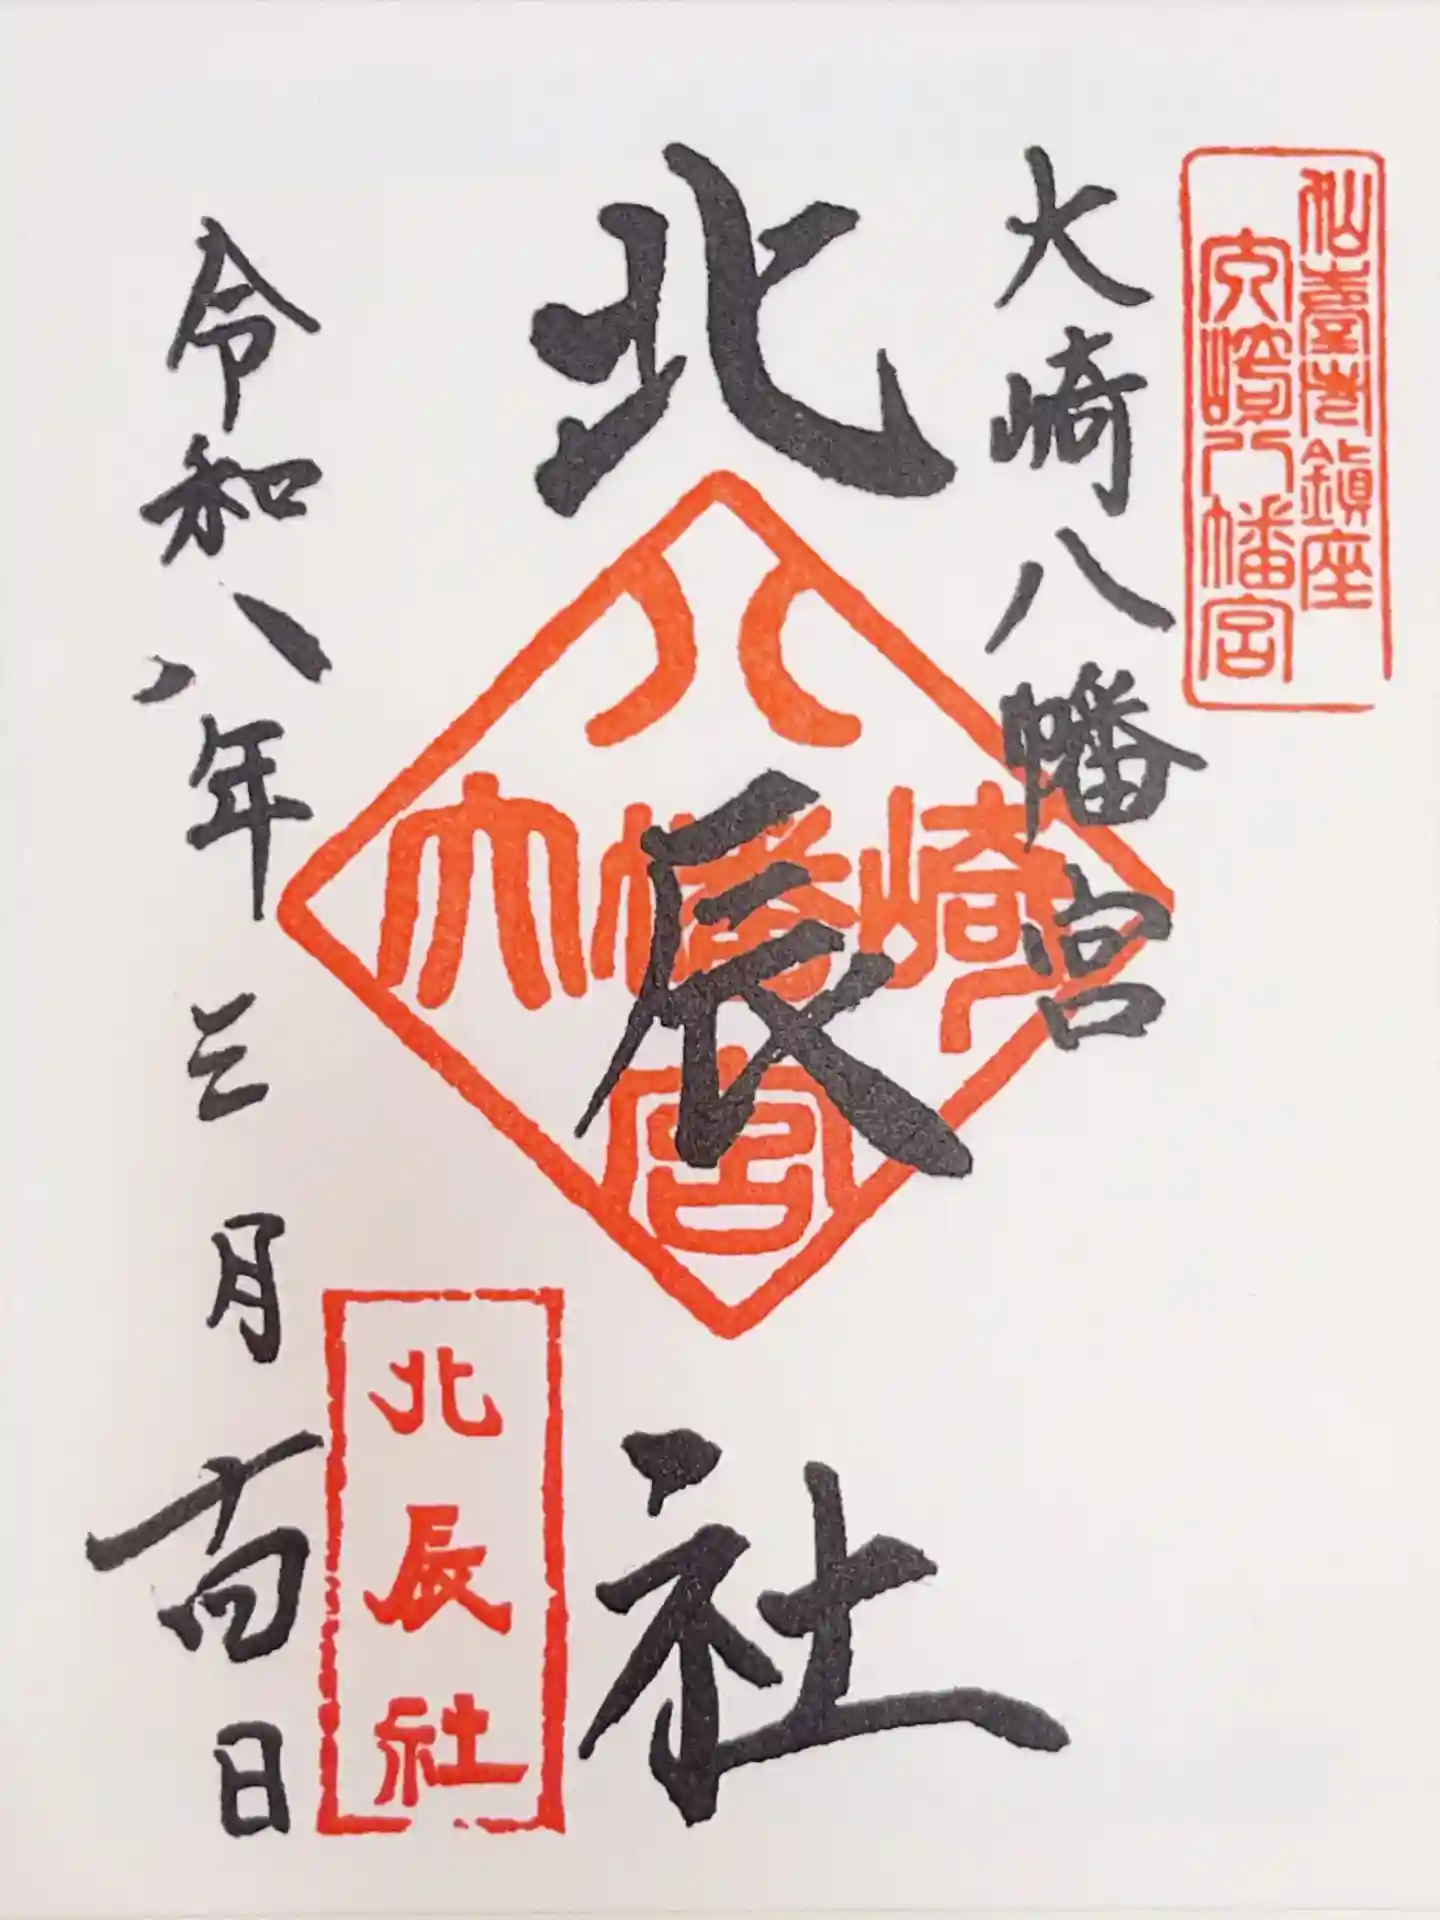 仙臺市鎮座
大崎八幡宮
大崎八幡宮
北辰社
八
大幡崎
宮
北辰社
令和八年三月十四日